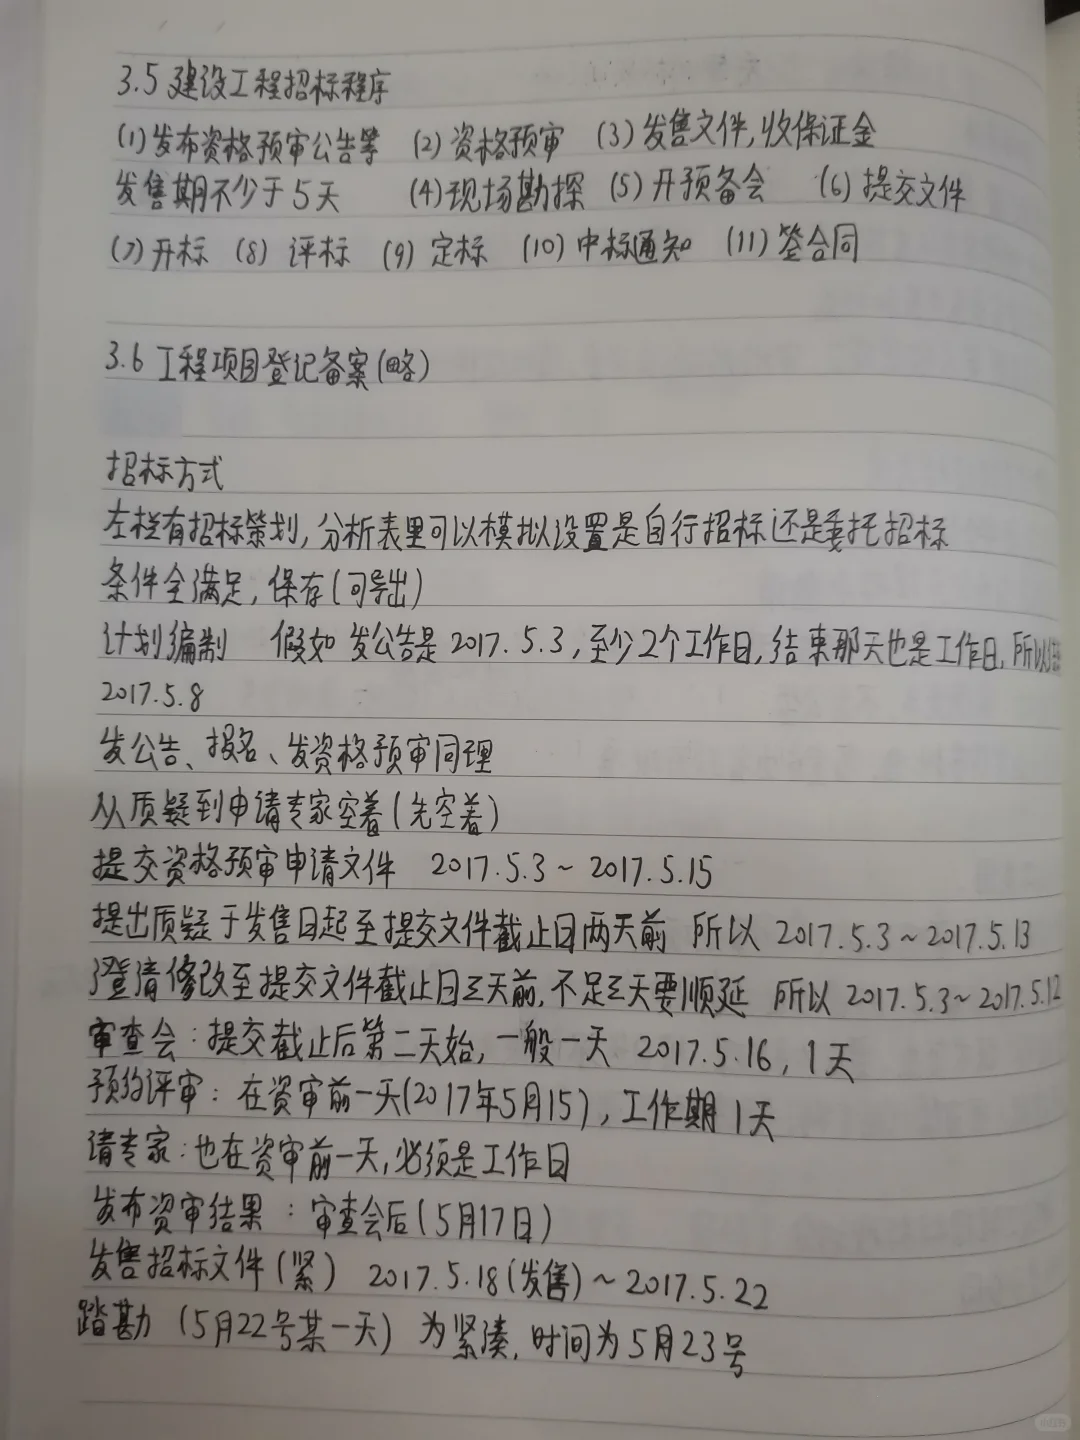 3.5 建设工程招标程序
(1) 发布资格预审公告等 (2) 资格预审 (3) 发售文件,收保证金
发售期不少于5天 (4) 现场勘探 (5) 开预备会 (6) 提交文件
(7) 开标 (8) 评标 (9) 定标 (10) 中标通知 (11) 签合同
3.6 工程项目登记备案(略)
招标方式
左栏有招标策划,分析表里可以模拟设置是自行招标还是委托招标
条件全满足,保存(可导出)
计划编制 假如发公告是2017.5.3,至少2个工作日,结束那天也是工作日,所以
2017.5.8
发公告、报名、发资格预审同理
从质疑到申请专家空着(先空着)
提交资格预审申请文件 2017.5.3~2017.5.15
提出质疑于发售日起至提交文件截止日两天前 所以 2017.5.3~2017.5.13
澄清修改至提交文件截止日三天前,不足三天要顺延 所以 2017.5.3~2017.5.12
审查会:提交截止后第二天始,一般一天 2017.5.16,1天
预约评审:在资审前一天(2017年5月15),工作期1天
请专家:也在资审前一天,必须是工作日
发布资审结果:审查会后(5月17日)
发售招标文件(紧) 2017.5.18(发售)~2017.5.22
踏勘(5月22号某一天)为紧凑,时间为5月23号
小红书